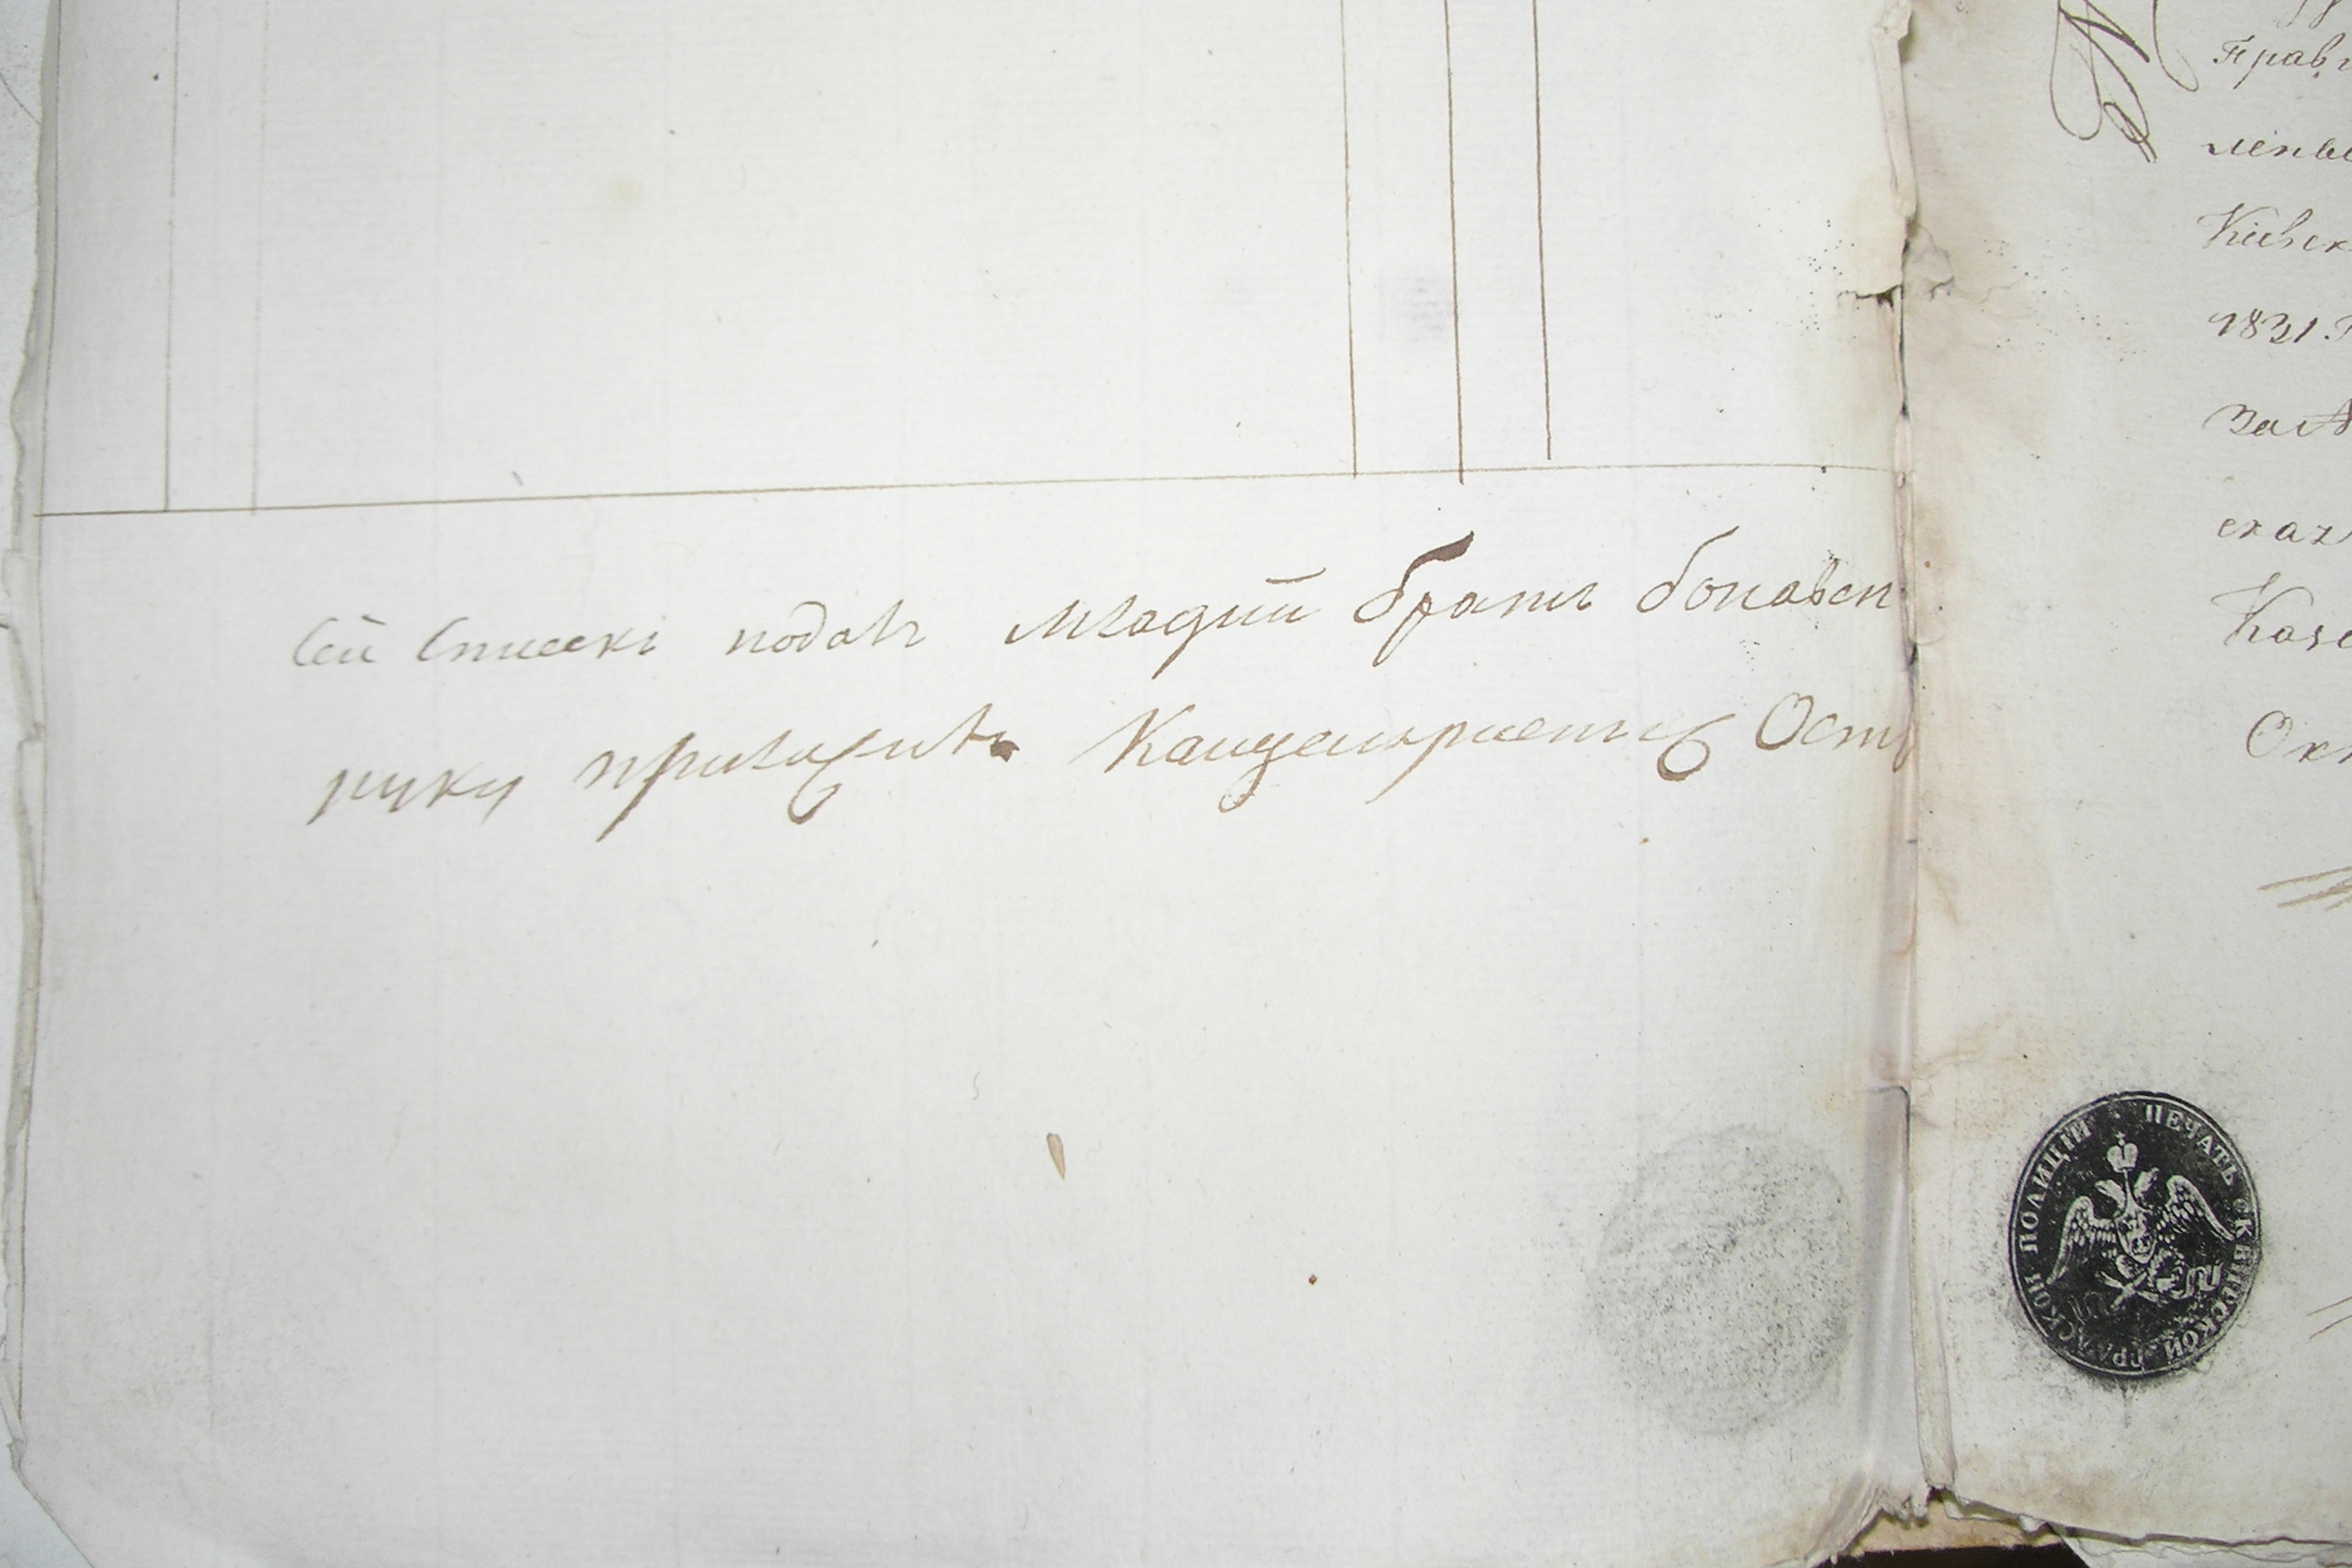 Сей Списокъ подалъ младшій братъ бонавен
руку приложилъ Канцеляристъ Ост
Прав
лены
Кіевск
1831
сказ
Каз
ПЕЧАТЬ КІЕВСКОЙ ГРАДСКОЙ ПОЛИЦІИ